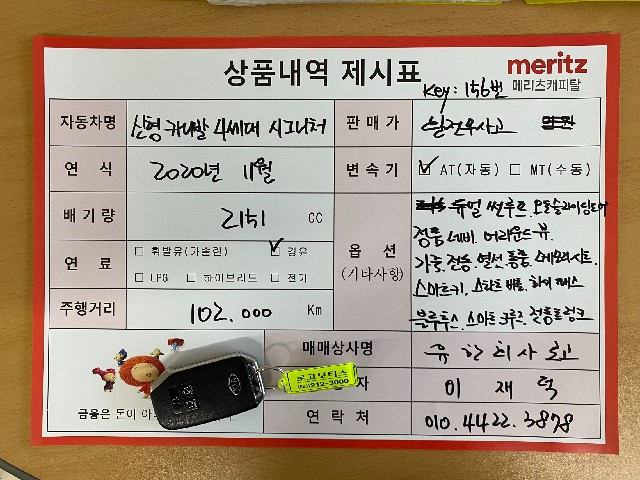 상품내역 제시표
meritz
메리츠캐피탈
Key: 156번
자동차명 신형 카니발 4세대 시그니처
판매가 실건무사고
연 식 2020년 11월
변속기 ☑ AT(자동) □ MT(수동)
배기량 2151 CC
연 료 □ 휘발유(가솔린) ☑ 경유
□ LPG □ 하이브리드 □ 전기
주행거리 102.000 Km
옵 션
(기타사항)
듀얼 썬루프. 오토슬라이딩도어
정품 네비. 어라운드뷰.
가죽. 전동. 열선. 통풍. 메모리시트.
스마트키. 스타트 버튼. 하이패스
블루투스. 스마트크루즈. 전동트렁크
매매상사명 유한회사
자 이재혁
연락처 010.4422.3878
금융은 돈이 아
KIA
212-3000